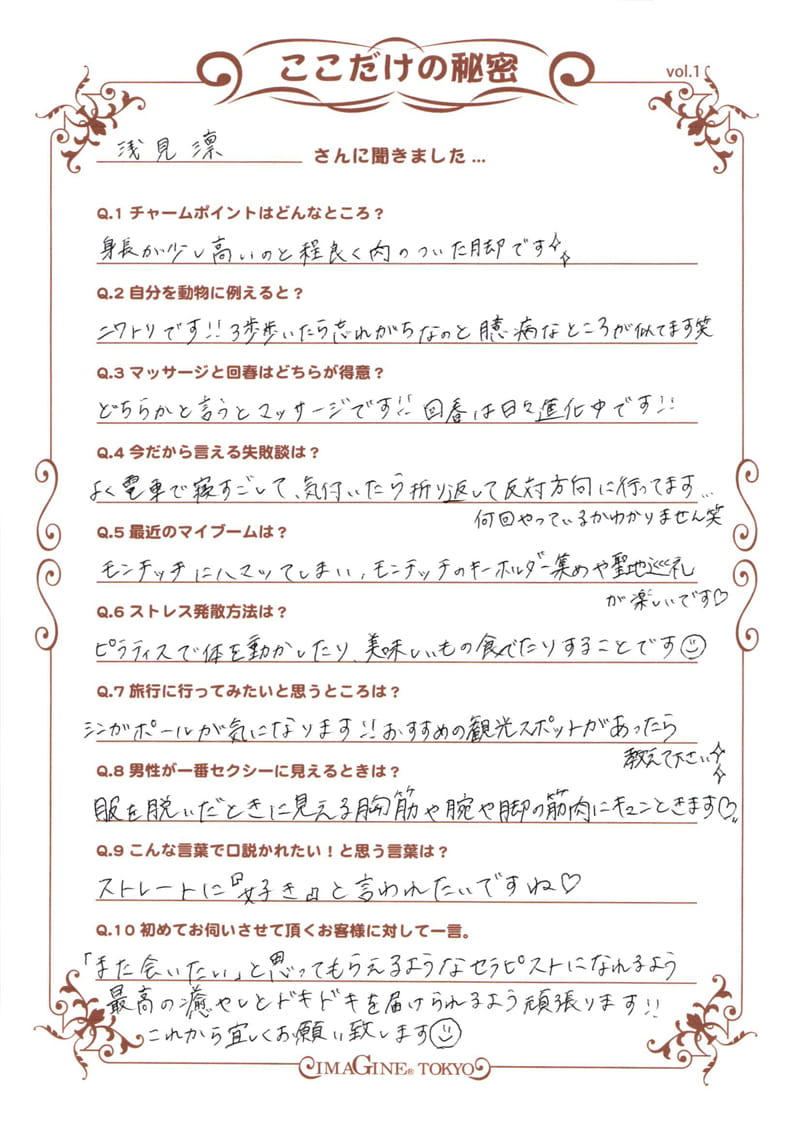 ここだけの秘密
vol.1
浅見凛 さんに聞きました...
Q.1 チャームポイントはどんなところ？
身長が少し高いのと程良く肉のついた脚です
Q.2 自分を動物に例えると？
ニワトリです!!3歩歩いたら忘れがちなのと臆病なところが似てます笑
Q.3 マッサージと回春はどちらが得意？
どちらかと言うとマッサージです!!回春は日々進化中です!!
Q.4 今だから言える失敗談は？
よく電車で寝すごして、気付いたら折り返して反対方向に行ってます...
何回やっているかわかりません笑
Q.5 最近のマイブームは？
モンチッチにハマってしまい、モンチッチのキーホルダー集めや聖地巡礼
が楽しいです♡
Q.6 ストレス発散方法は？
ピラティスで体を動かしたり、美味しいもの食べたりすることです☺
Q.7 旅行に行ってみたいと思うところは？
シンガポールが気になります!!おすすめの観光スポットがあったら
教えて下さい
Q.8 男性が一番セクシーに見えるときは？
服を脱いだときに見える胸筋や腕や脚の筋肉にキュンときます♡
Q.9 こんな言葉で口説かれたい！と思う言葉は？
ストレートに『好き』と言われたいですね♡
Q.10 初めてお伺いさせて頂くお客様に対して一言。
「また会いたい」と思ってもらえるようなセラピストになれるよう
最高の癒やしとドキドキを届けられるよう頑張ります!!
これから宜しくお願い致します☺
IMAGINE® TOKYO